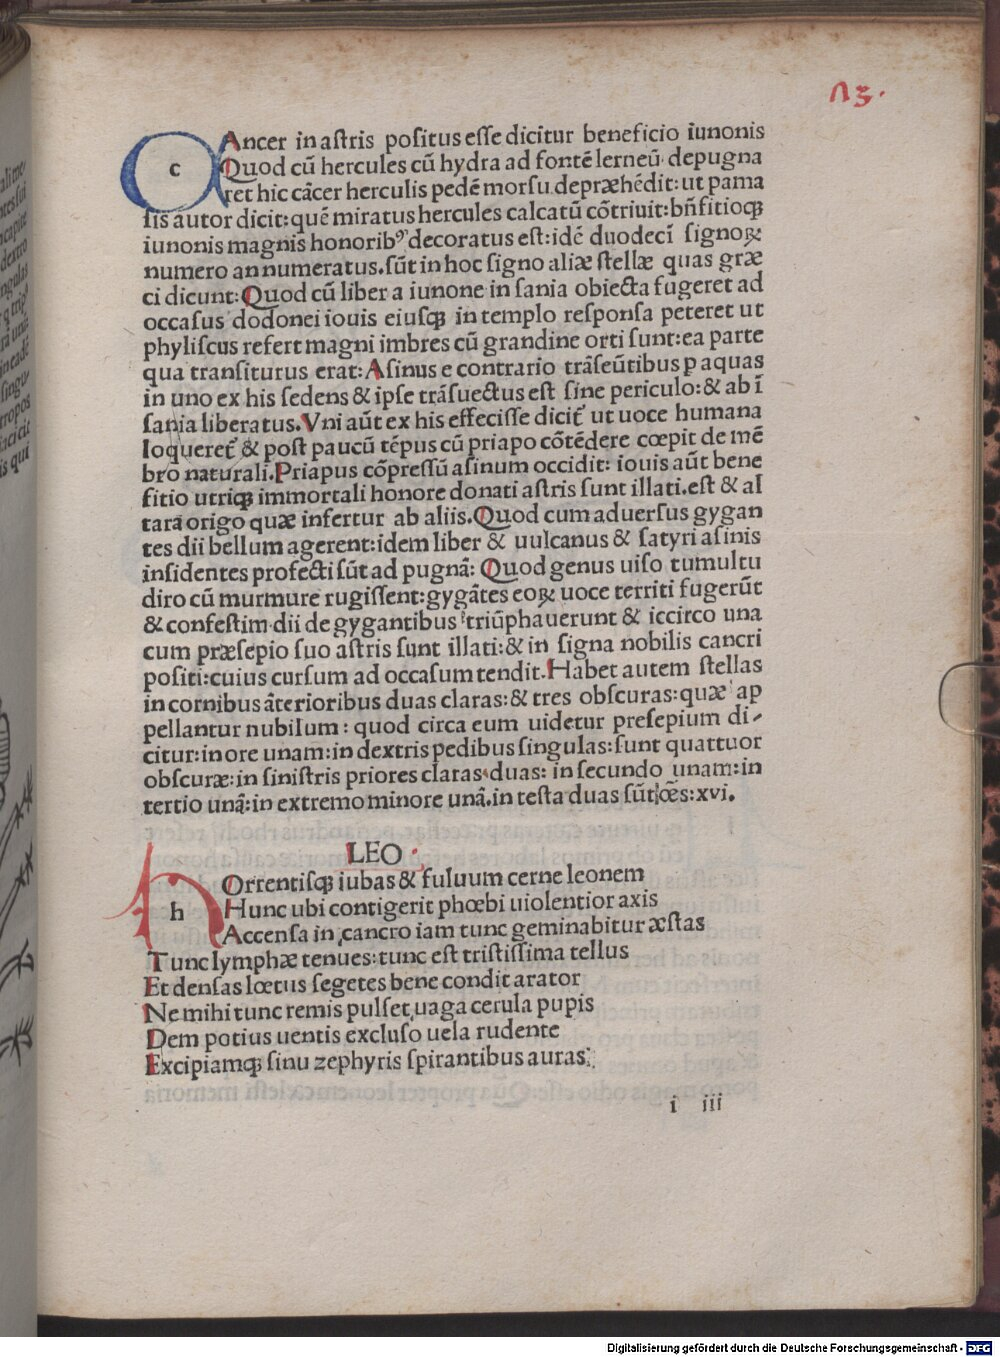 93.
cAncer in aſtris poſitus eſſe dicitur beneficio iunonis
Quod cũ hercules cũ hydra ad fontẽ lerneũ depugna
ret hic cãcer herculis pedẽ morſu depræhẽdit: ut pama
ſis autor dicit: quẽ miratus hercules calcatũ cõtriuit: bñfitioqꝫ
iunonis magnis honoribꝰ decoratus eſt: idẽ duodecĩ ſignoꝝ
numero annumeratus. ſũt in hoc ſigno aliæ ſtellæ quas græ
ci dicunt: Quod cũ liber a iunone in ſania obiecta fugeret ad
occaſus dodonei iouis eiuſqꝫ in templo reſponſa peteret ut
phyliſcus refert magni imbres cũ grandine orti ſunt: ea parte
qua tranſiturus erat: Aſinus e contrario trãſeũtibus p aquas
in uno ex his ſedens & ipſe trãſuectus eſt ſine periculo: & ab ĩ
ſania liberatus. Vni aũt ex his effeciſſe dicit᷑ ut uoce humana
loqueret᷑ & poſt paucũ tẽpus cũ priapo cõtẽdere cœpit de mẽ
bro naturali. Priapus cõpreſſũ aſinum occidit: iouis aũt bene
fitio utriqꝫ immortali honore donati aſtris ſunt illati. eſt & al
tara origo quæ infertur ab aliis. Quod cum aduerſus gygan
tes dii bellum agerent: idem liber & uulcanus & ſatyri aſinis
inſidentes profecti ſũt ad pugnã: Quod genus uiſo tumultu
diro cũ murmure rugiſſent: gygãtes eoꝝ uoce territi fugerũt
& confeſtim dii de gygantibus triũphauerunt & iccirco una
cum præſepio ſuo aſtris ſunt illati: & in ſigna nobilis cancri
poſiti: cuius curſum ad occaſum tendit. Habet autem ſtellas
in cornibus ãterioribus duas claras: & tres obſcuras: quæ ap
pellantur nubilum: quod circa eum uidetur preſepium di⸗
citur: in ore unam: in dextris pedibus ſingulas: ſunt quattuor
obſcuræ: in ſiniſtris priores claras duas: in ſecundo unam: in
tertio unã: in extremo minore unã. in teſta duas ſũt oẽs: xvi.
LEO
hOrrentiſqꝫ iubas & fuluum cerne leonem
Hunc ubi contigerit phœbi uiolentior axis
Accenſa in cancro iam tunc geminabitur æſtas
Tunc lymphæ tenues: tunc eſt triſtiſſima tellus
Et denſas lœtus ſegetes bene condit arator
Ne mihi tunc remis pulſet uaga cerula pupis
Dem potius uentis excluſo uela rudente
Excipiamqꝫ ſinu zephyris ſpirantibus auras.
i iii
Digitalisierung gefördert durch die Deutsche Forschungsgemeinschaft - DFG